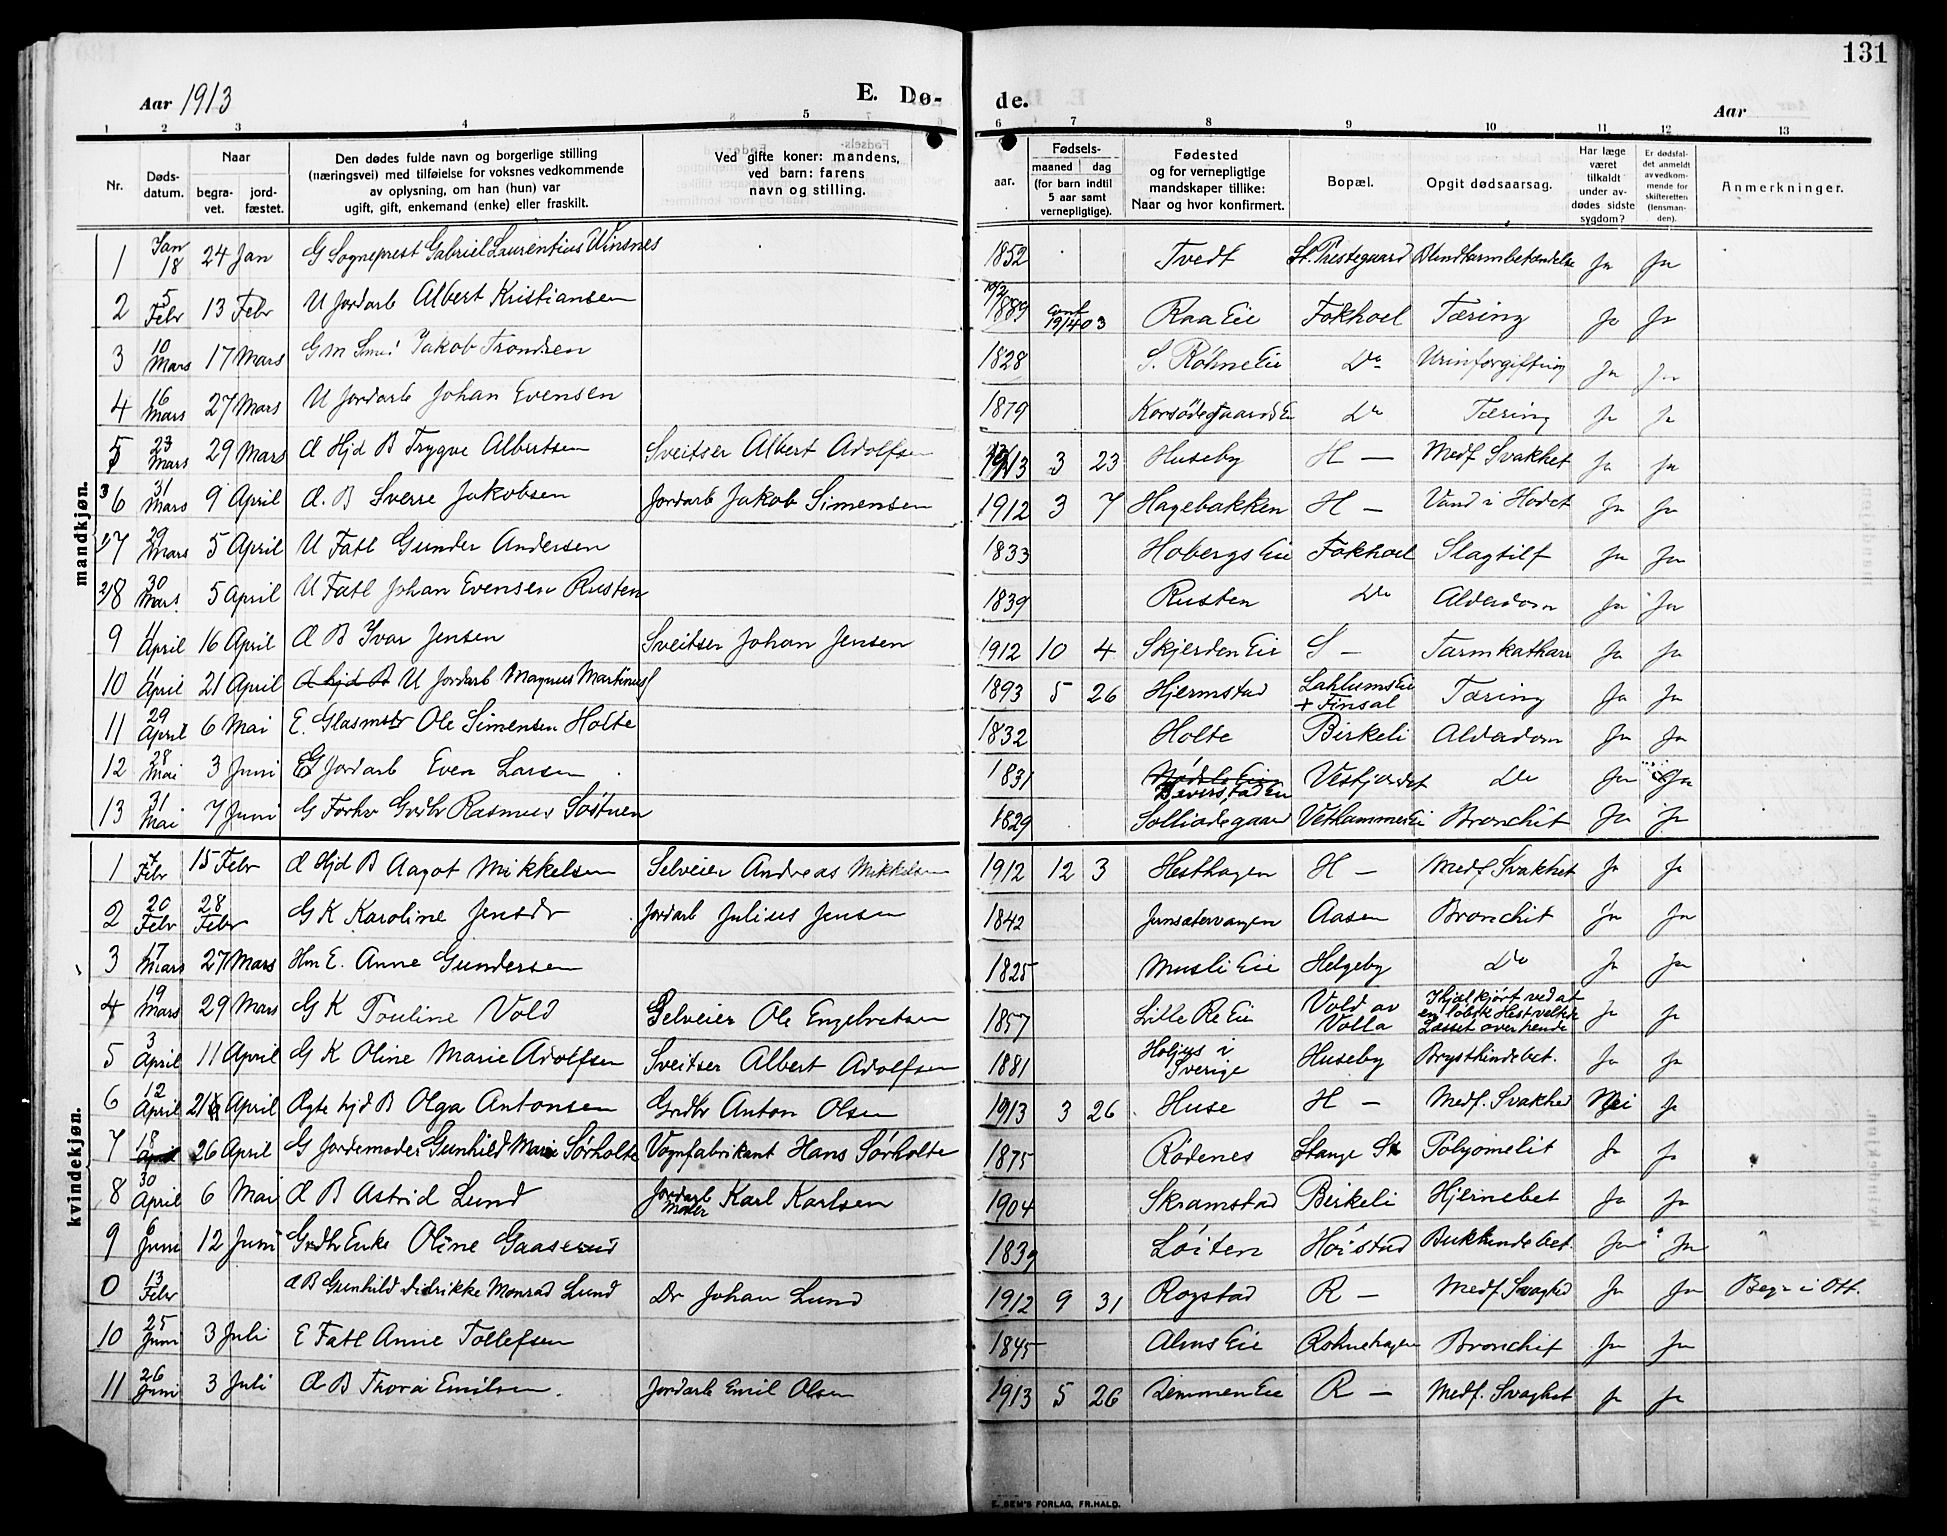 131
Aar 1913 E. Dø- de. Aar
1 2 3 4 5 6 6 7 8 9 10 11 12 13
Nr. Døds-datum. Naar begra-vet. jord-fæstet. Den dødes fulde navn og borgerlige stilling (næringsvei) med tilføielse for voksnes vedkommende av oplysning, om han (hun) var ugift, gift, enkemand (enke) eller fraskilt. Ved gifte koner: mandens, ved barn: farens navn og stilling. Fødsels- aar. maaned dag (for barn indtil 5 aar samt vernepligtige). Fødested og for vernepligtige mandskaper tillike: Naar og hvor konfirmert. Bopæl. Opgit dødsaarsag. Har læge været tilkaldt under av-dødes sidste sygdom? Er dødsfal-det anmeldt av vedkom-mende for skifteretten (lensman-den). Anmerkninger.
mandkjøn.
1 Jan 18 24 Jan G Sogneprest Gabriel Laurentius Winsnes 1852 Tvedt St. Prestegaard Blindtarmbetændelse Ja Ja
2 5 Febr 13 Febr U Jordarb Albert Kristiansen 1889 conf 19/4 03 Raa Eie Fokhoel Tæring Ja Ja
3 10 Mars 17 Mars G m Smed Jakob Trondsen 1828 S. Røhne Eie Do Urinforgiftning Ja Ja
4 16 Mars 27 Mars U Jordarb Johan Evensen 1879 Korsødegaards Ei Do Tæring Ja Ja
5 23 Mars 29 Mars d Hjd B Trygve Albertsen Sveitser Albert Adolfsen 1913 3 23 Huseby H — Medf Svakhet Ja Ja
6 31 Mars 9 April d. B Sverre Jakobsen Jordarb Jakob Simensen 1912 3 7 Hagebakken H — Vand i Hodet Ja Ja
7 29 Mars 5 April U Fatl Gunder Andersen 1833 Hobergs Eie Fokhoel Slagtilf Ja Ja
8 30 Mars 5 April U Fatl Johan Evensen Rusten 1839 Rusten Do Alderdom Ja Ja
9 April 16 April d B Ivar Jensen Sveitser Johan Jensen 1912 10 4 Skjerden Eie S — Tarmkatharr Ja Ja
10 April 21 April d hjd B U Jordarb Magnus Martinus 1893 5 26 Hjermstad Lahlums Eie + Finsal Tæring Ja Ja
11 29 April 6 Mai E. Glasmstr Ole Simensen Holte 1832 Holte Birkeli Alderdom Ja Ja
12 28 Mai 3 Juni G Jordarb Even Larsen 1831 Beverstad Eie Vestjordet Do Ja Ja
13 31 Mai 7 Juni G Forhv Grdbr Rasmus Sostuen 1829 Solliødegaard Vethammer Ei Bronchit Ja Ja
kvindekjøn.
1 4 Febr 15 Febr d Hjd B Aagot Mikkelsen Selveier Andreas Mikkelsen 1912 12 3 Hesthagen H — Medf Svakhet Ja Ja
2 20 Febr 28 Febr G K Karoline Jensdr Jordarb Julius Jensen 1842 Junsætervangen Aasen Bronchit Ja Ja
3 17 Mars 27 Mars Hm E. Anne Gundersen 1825 Musli Eie Helgeby Do Ja Ja
4 19 Mars 29 Mars G K Pouline Vold Selveier Ole Engebretsen 1857 Lille Re Eie Vold av Volla Ihjelkjørt ved at en løbsk Hest veltede Læsset over hende Ja Ja
5 3 April 11 April G K Oline Marie Adolfsen Sveitser Albert Adolfsen 1881 Holjus i Sverige Huseby Brysthindebet. Ja Ja
6 12 April 21 April Ægte hjd B Olga Antonsen Grdbr Anton Olsen 1913 3 26 Huse H — Medf. Svakhed Nei Ja
7 18 April 26 April G Jordemoder Gunhild Marie Sørholte Vognfabrikant Hans Sørholte 1875 Rødenes Stange St Polyomelit Ja Ja
8 30 April 6 Mai d B Astrid Lund Jordarb Maler Karl Karlsen 1904 Skramstad Birkeli Hjernebet Ja Ja
9 6 Juni 12 Juni Grdbr Enke Oline Gaaserud 1839 Løiten Hoistad Bukhindebet. Ja Ja
0 13 Febr d B Gunhild Didrikke Monrad Lund Dr Johan Lund 1912 9 31 Rogstad R — Medf Svaghed Ja Ja Begr i Ott.
10 25 Juni 3 Juli E Fatl Anne Tollefsen 1845 Alms Eie Rohnehagen Bronchit Ja Ja
11 26 Juni 3 Juli d B Thora Emilsen. Jordarb Emil Olsen 1913 5 26 Lemmen Eie R — Medf. Svaghet Ja Ja
E. SEM'S FORLAG, FR.HALD.